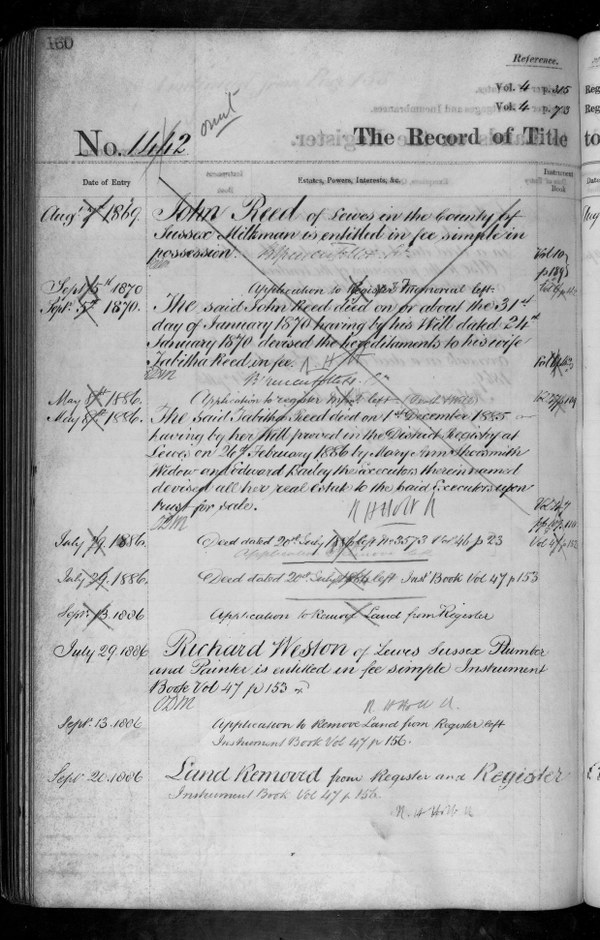 160
Reference.
Vol. 4 p. 315
Vol. 4 p. 73
omit
No. 1442 The Record of Title
Date of Entry Estates, Powers, Interests, &c. Instrument Book
Augt 7th 1869. John Reed of Lewes in the County of
Sussex Milkman is entitled in fee simple in
possession.
Vol 10
Sept 5th 1870 Application to Register Memorial left.
Sept. 5th 1870. The said John Reed died on or about the 31st
day of January 1870 having by his Will dated 24th
January 1870 devised the hereditaments to his wife
Tabitha Reed, in fee. R H H
ODM
May 8th 1886. Application to register left
May 8th 1886. The said Tabitha Reed died on 1st December 1885
having by her Will proved in the District Registry at
Lewes on 26th February 1886 by Mary Ann Shoesmith
Widow and Edward Bailey the executors therein named
devised all her real Estate to the said Executors upon
trust for sale. R H Holt R
ODM
Vol 47
July 29. 1886. Deed dated 20th July 1886 left No 3573 Vol 46 p 23 Vol 47 p 153
July 29. 1886. Deed dated 20th July 1886 left Inst Book Vol 47 p 153
Sept. 13. 1886 Application to Remove Land from Register
July 29 1886 Richard Weston of Lewes Sussex Plumber
and Painter is entitled in fee simple Instrument
Book Vol 47 p 153
ODM R H Holt R
Sept. 13. 1886 Application to Remove Land from Register left
Instrument Book Vol 47 p 156.
Sept 20. 1886 Land Removed from Register and Register
Instrument Book Vol 47 p 156
R H Holt R